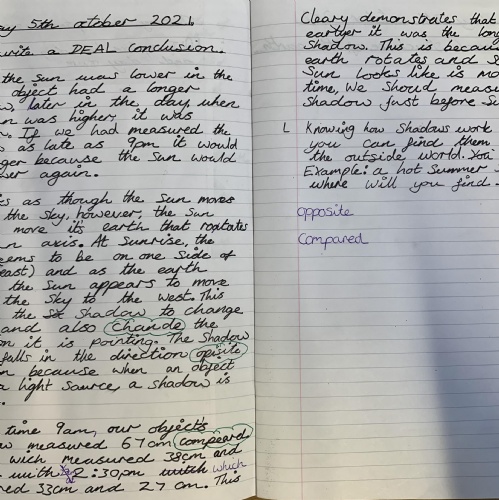 ay 5th october 2021.
write a DEAL conclusion.
the Sun was lower in the
object had a longer
later in the day, when
n was higher, it was
. If we had measured the
as late as 9pm it would
ger because the Sun would
wer again.
as though the Sun moves
the Sky, however, the Sun
move it's earth that
n axis. At Sunrise, the
eems to be on one Side of
east) and as the earth
the Sun appears to move
the Sky to the west. This
the Shadow to change
and also Chande the
on it is pointing. The Shadow
falls in the direction opisite
n because when an object
a light Source, a shadow is
time 9am, our objects
w measured 67cm compeard
wich measured 38cm and
with 2:30pm which
red 33cm and 27 cm. This
Cleary demonstrates that
eartyer it was the lon
Shadow. This is becau
earth rotates and S
Sun Looks like is mo
time, We Should measu
Shadow just before Su
L Knowing how Shadows work
you can find them
the outside world.
Example: a hot Summer
where will you find
opposite
Compared